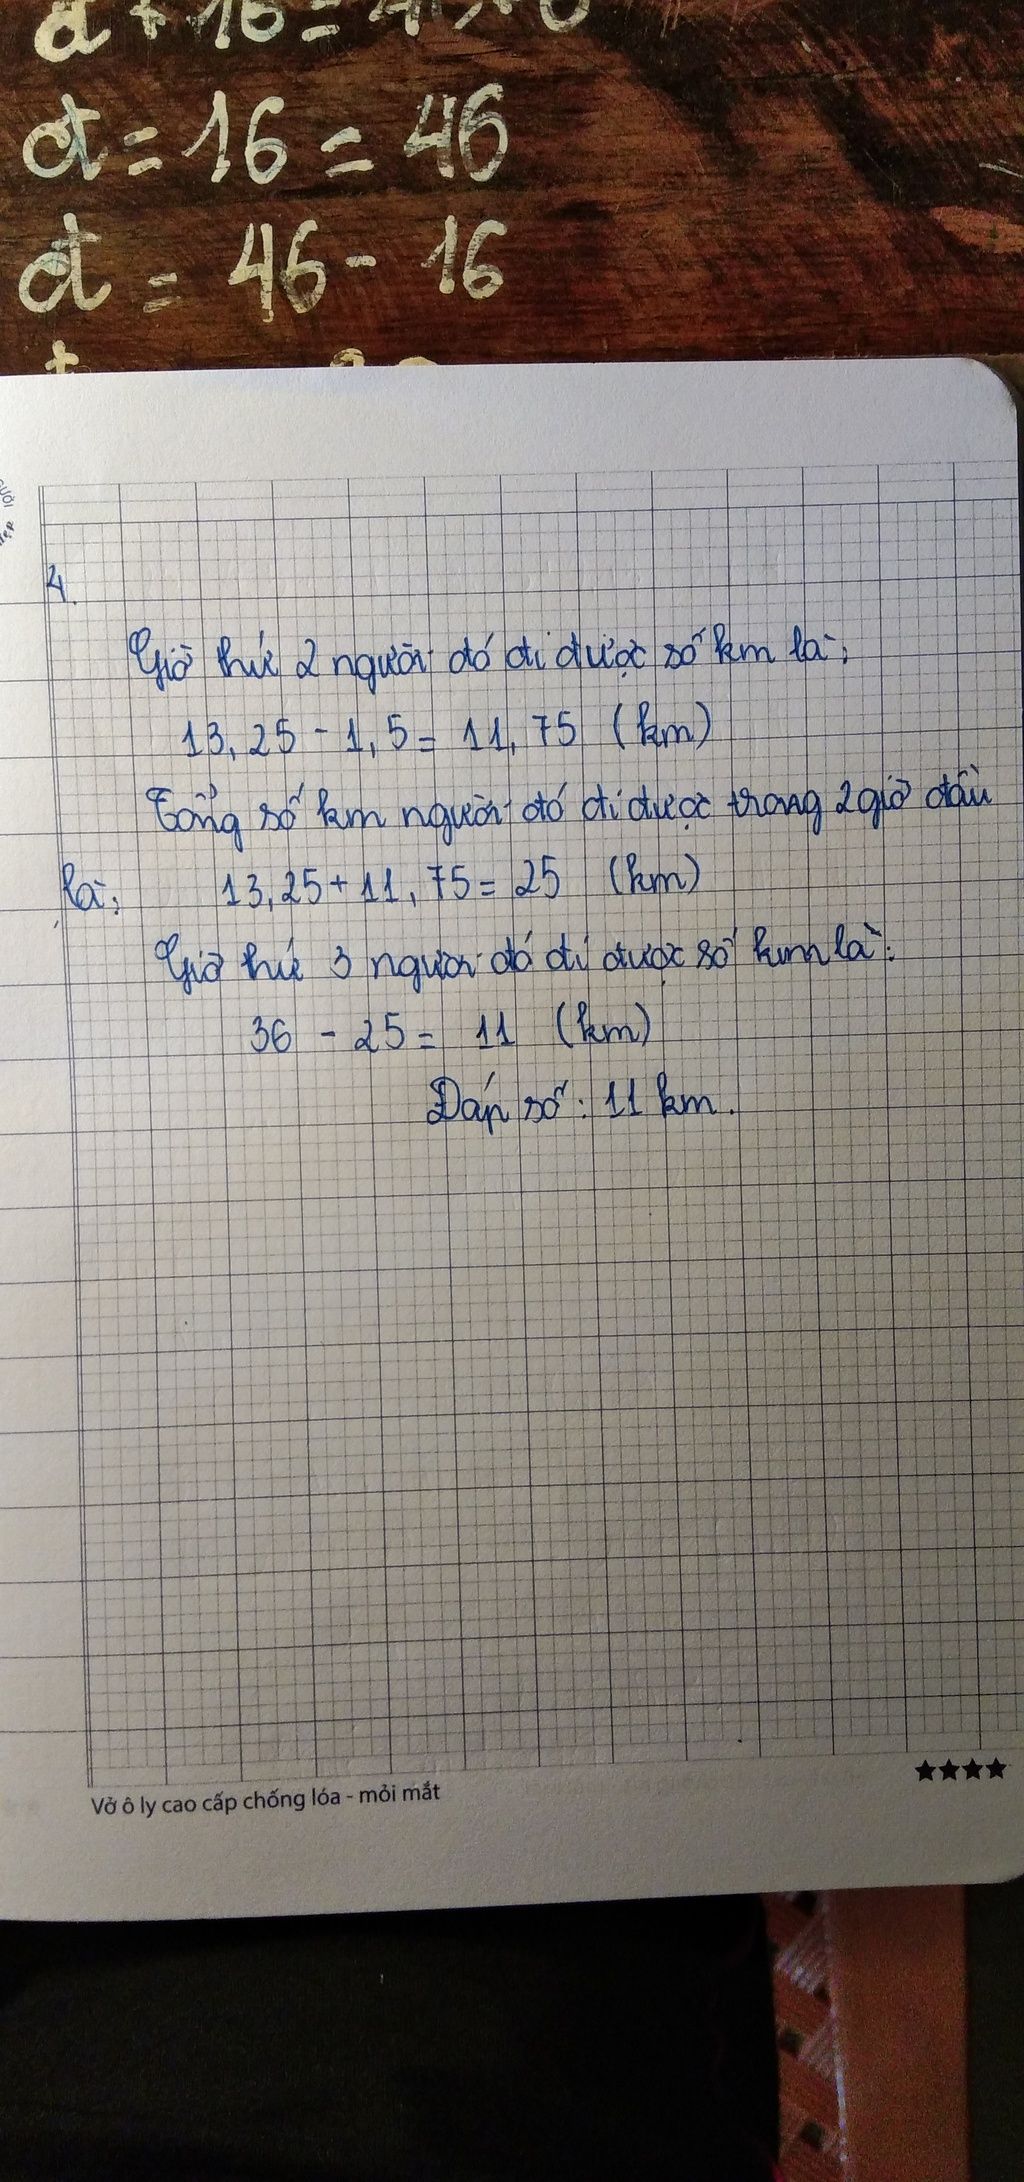 x + 16 =
x = 16 = 46
x = 46 - 16
4.
Giờ thứ 2 người đó đi được số km là:
13,25 - 1,5 = 11,75 (km)
Tổng số km người đó đi được trong 2 giờ đầu
là: 13,25 + 11,75 = 25 (km)
Giờ thứ 3 người đó đi được số km là:
36 - 25 = 11 (km)
Đáp số: 11 km.
Vở ô ly cao cấp chống lóa - mỏi mắt